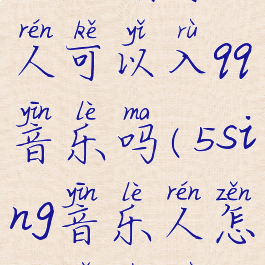 rén kě yǐ rù
人可以入qq
yīn lè ma
音乐吗(5si
yīn lè rén zěn
ng音乐人怎